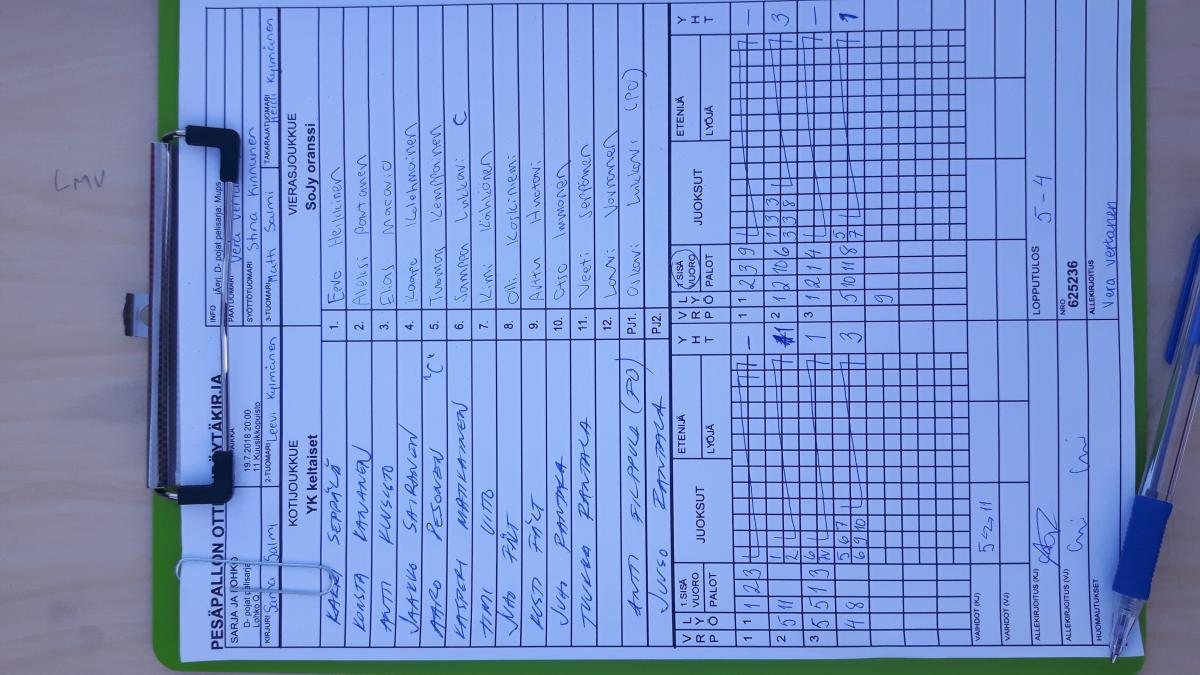 LMV
PESÄPALLON OTT
ÖYTÄKIRJA
SARJA JA LOHKO
D- pojat pelisarja
Lohko Q
19.7.2018 20:00
11 Kuusikkopuisto
INFO
D- pojat pelisarja: Mups
PÄÄTUOMARI
SYÖTTÖTUOMARI Stina Kinnunen
KIRJURI Sanna Salmi
2-TUOMARI Leevi Kylmänen
3-TUOMARI Matti Salmi
TAKARAJATUOMARI Heidi Kylmänen
KOTIJOUKKUE
YK keltaiset
VIERASJOUKKUE
SoJy oranssi
SEPPÄLÄ 1. Eevo Heikkinen
KONSTA KANANEN 2. Aleksi
ANTTI KUUSISTO 3. Elias
JAAKKO SAIRANEN 4. Kaapo Kolehmainen
AARO PESONEN "C" 5. Tuomas Kemppainen
KASPERI MATIKAINEN 6. Sampsa Lukkari C
TIMI UITO 7. Kimi
JUHO FÄLT 8. Olli Koskiniemi
KOSTI FÄLT 9. Arttu Huotari
JUHO RANTALA 10. Otso Immonen
TUUKKA RANTALA 11. Veeti Seppänen
12. Lauri Vauranen
ANTTI FILPPULA (PO) PJ1. Oskari Lukkari (PO)
JUUSO RANTALA PJ2.
V R P L Y Ö 1.SISÄ VUORO PALOT JUOKSUT ETENIJÄ LYÖJÄ Y H T
V R P L Y Ö 1.SISÄ VUORO PALOT JUOKSUT ETENIJÄ LYÖJÄ Y H T
1 1 1 2 3 – 1 1 2 3 9 –
2 5 11 1 2 1 2 1 2 10 6 1 3 3 3 3 8 3
3 5 5 1 3 6 1 3 1 2 1 4 –
4 8 5 6 7 6 9 10 3 5 10 11 8 5 7 1
9
VAIHDOT (KJ) 5 11
VAIHDOT (VJ)
LOPPUTULOS 5 - 4
ALLEKIRJOITUS (KJ)
ALLEKIRJOITUS (VJ)
NRO
625236
HUOMAUTUKSET
ALLEKIRJOITUS
Vera Vertanen